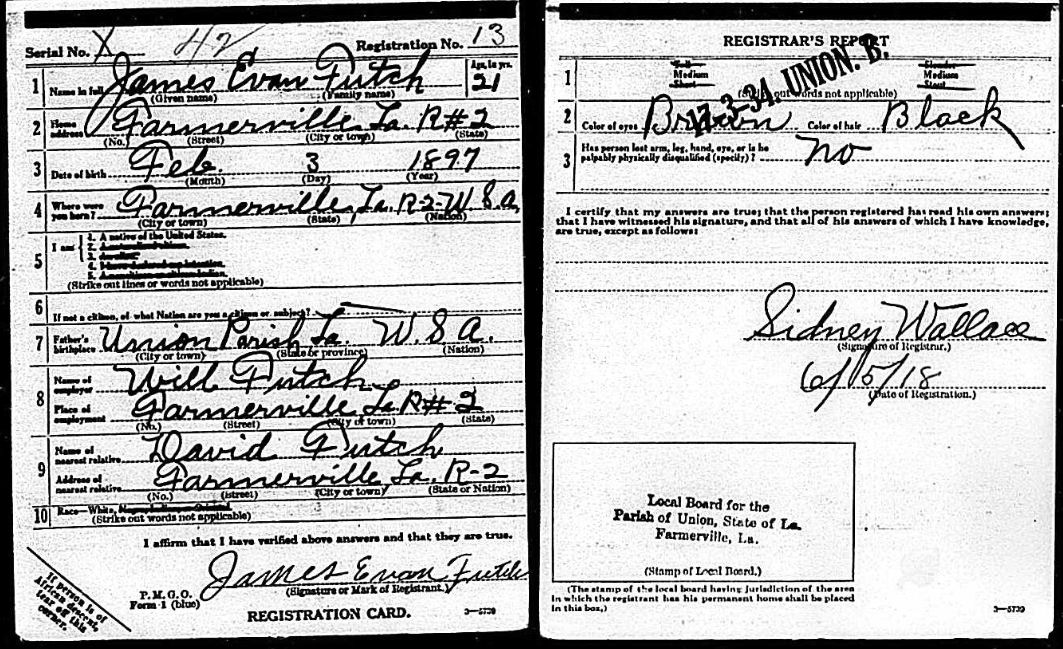 Serial No. X 42 Registration No. 13
1 Name in full James Evan Futch Age, in yrs. 21
(Given name) (Family name)
2 Home address Farmerville La. R#2
(No.) (Street) (City or town) (State)
3 Date of birth Feb. 3 1897
(Month) (Day) (Year)
4 Where were you born? Farmerville, La. R-2- U S A,
(City or town) (State) (Nation)
5 I am
1. A native of the United States.
2.
3.
4. I have declared my intention.
5.
(Strike out lines or words not applicable)
6 If not a citizen, of what Nation are you a citizen or subject?
7 Father's birthplace Union Parish La. U. S A.
(City or town) (State or province) (Nation)
8 Name of employer Will Futch
Place of employment Farmerville La. R#2
(No.) (Street) (City or town) (State)
9 Name of nearest relative David Futch
Address of nearest relative Farmerville La. R-2
(No.) (Street) (City or town) (State or Nation)
10 Race—White,
(Strike out words not applicable)
I affirm that I have verified above answers and that they are true.
James Evan Futch
(Signature or Mark of Registrant.)
P. M. G. O.
Form 1 (blue)
REGISTRATION CARD. 3—5739
If person is of
African descent,
tear off this
corner.
REGISTRAR'S REPORT
17-3-34. UNION. B.
1 Tall Medium Short Slender Medium Stout
(Strike out words not applicable)
2 Color of eyes Brown Color of hair Black
3 Has person lost arm, leg, hand, eye, or is he
palpably physically disqualified (specify)? no
I certify that my answers are true; that the person registered has read his own answers;
that I have witnessed his signature, and that all of his answers of which I have knowledge,
are true, except as follows:
Sidney Wallace
(Signature of Registrar.)
6/5/18
(Date of Registration.)
Local Board for the
Parish of Union, State of La.
Farmerville, La.
(Stamp of Local Board.)
(The stamp of the local board having jurisdiction of the area
in which the registrant has his permanent home shall be placed
in this box.)
3—5739